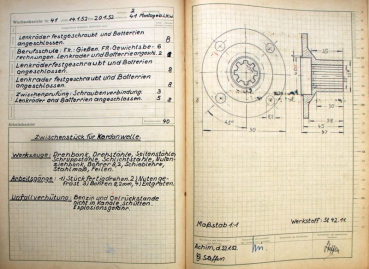 Wochenbericht Nr. 41 vom 14.1.52 - 20.1.52
Lenkräder festgeschraubt und Batterien 8
angeschlossen.
Berufschule: FK.: Gießen, FR: Gewichtsbe- 6
rechnungen. Lenkräder und Batterien angeschl. 2
Lenkräder festgeschraubt und Batterien
angeschlossen. 8
Lenkräder festgeschraubt und Batterien
angeschlossen. 8
Zwischenprüfung: Schraubenverbindung. 3
Lenkräder und Batterien angeschlossen. 5
40
Zwischenstück für Kardanwelle.
Werkzeuge: Drehbank, Drehstähle, Seitenstähle,
Schruppstähle, Schlichtstähle, Nuten-
Bohrer 8,2, Schieblehre,
Stahlmaß, Feilen.
Arbeitsgänge: 1) Stück fertigdrehen. 2) Nuten ge-
3) Bohren 8,2mm, 4) Entgraten.
Unfallverhütung: Benzin und Oelrückstände
nicht in Kanäle schütten.
Explosionsgefahr.
Maßstab 1:1
Werkstoff: St 42.11
Achim, d.